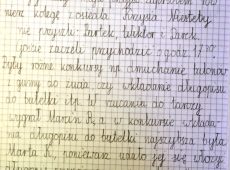 nież kolegę zosiela Krzysia. Niestety
nie przyszli: Bartek, Wiktor i Darek.
Goście zaczęli przychodzić o godz. 17 00.
Były różne konkursy np. dmuchanie balonów
z gumy do żucia, czy wkładanie długopisu
do butelki itp. W rzucaniu do tarczy
wygrał Marcin K., a w konkursie wkłada-
nia długopisu do butelki najszybsza była
Marta R., ponieważ udało jej się włożyć